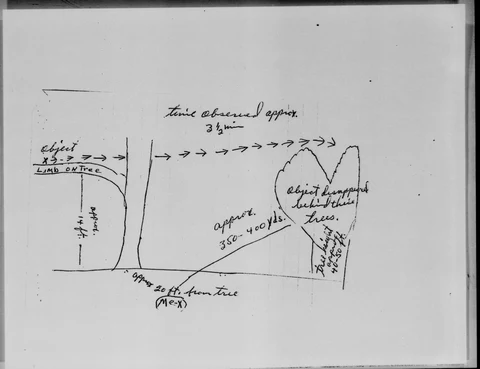 time observed approx.
3 1/2 min
object
X
Limb on Tree
approx.
14 ft.
approx.
350-400 yds.
Object disappeared
behind these
trees.
tree height
approx
40-50 ft
approx
20 ft. from tree
(Me-X)